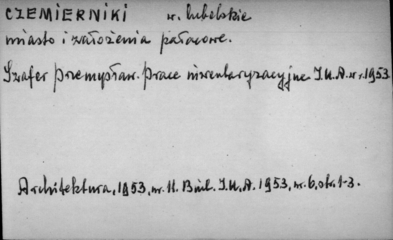 CZEMIERNIKI w. lubelskie
miasto i założenia pałacowe.
Szafer Przemysław. Prace inwentaryzacyjne I.U.A. w r. 1953.
Architektura, 1953, nr. 11. Biul. I.U.A. 1953, nr. 6, str. 1-3.